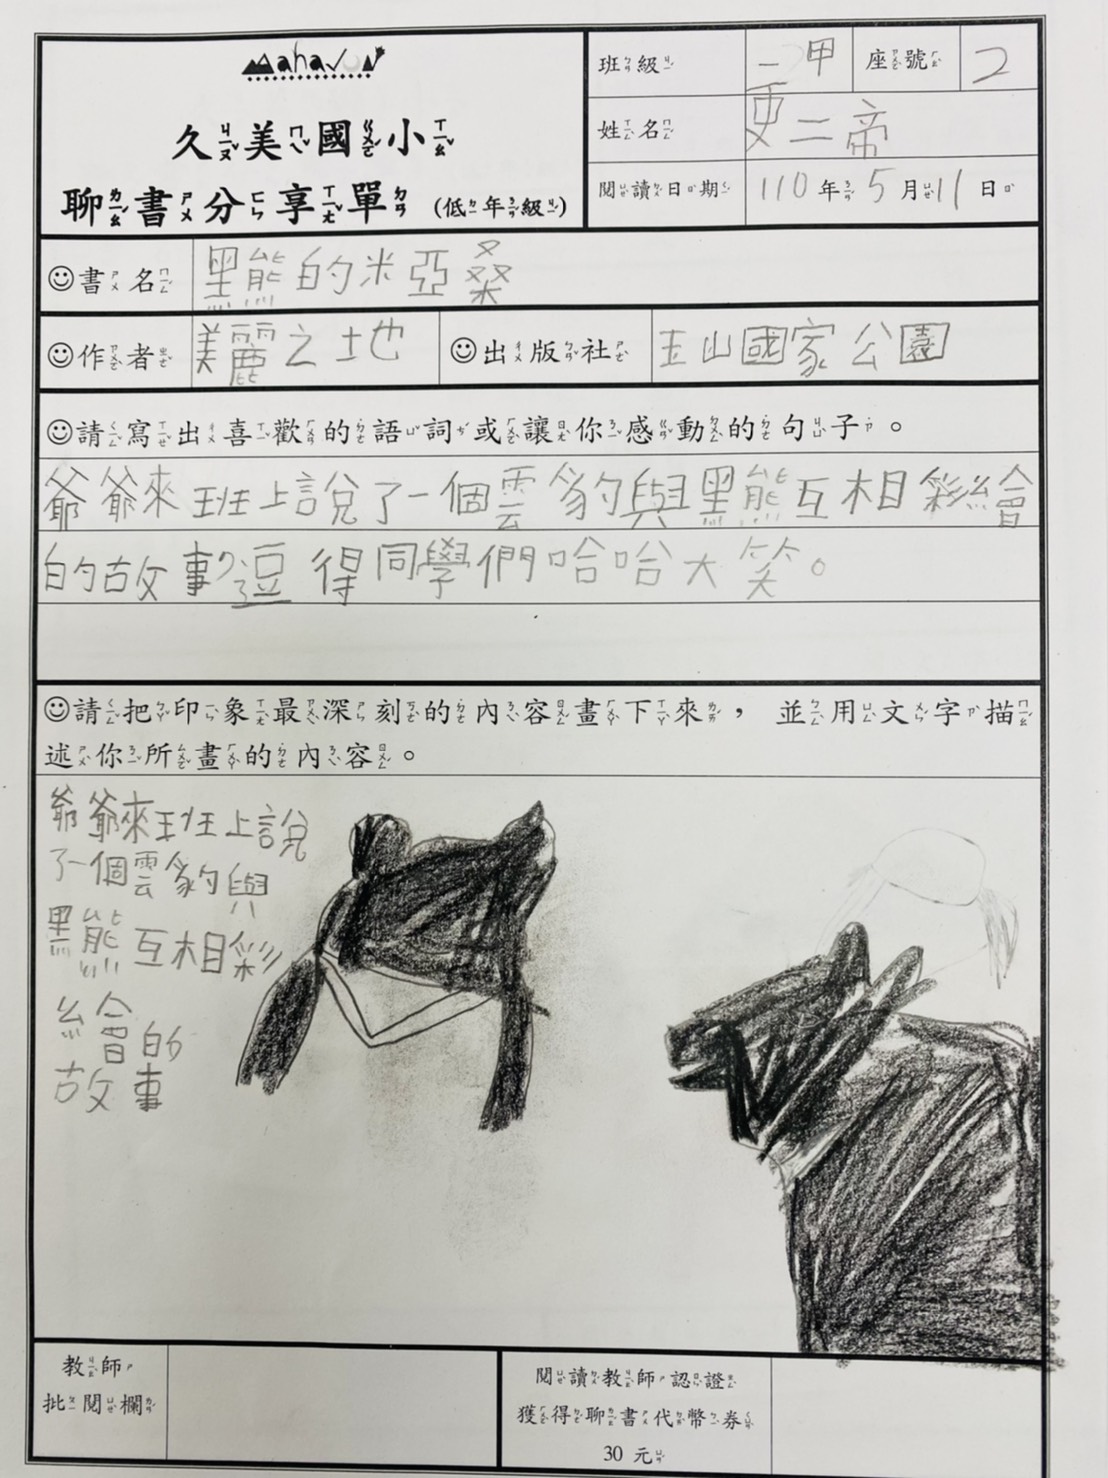 Mahavun
久美國小
聊書分享單 (低年級)
班級 二甲 座號 2
姓名 更二帝
閱讀日期 110年5月11日
☺書名 黑熊的米亞桑
☺作者 美麗之地 ☺出版社 玉山國家公園
☺請寫出喜歡的語詞或讓你感動的句子。
爺爺來班上說了一個雲豹與黑熊互相彩繪
的故事,逗得同學們哈哈大笑。
☺請把印象最深刻的內容畫下來, 並用文字描
述你所畫的內容。
爺爺來班上說
了一個雲豹與
黑熊互相彩
繪的
故事
教師
批閱欄
閱讀教師認證
獲得聊書代幣券
30 元